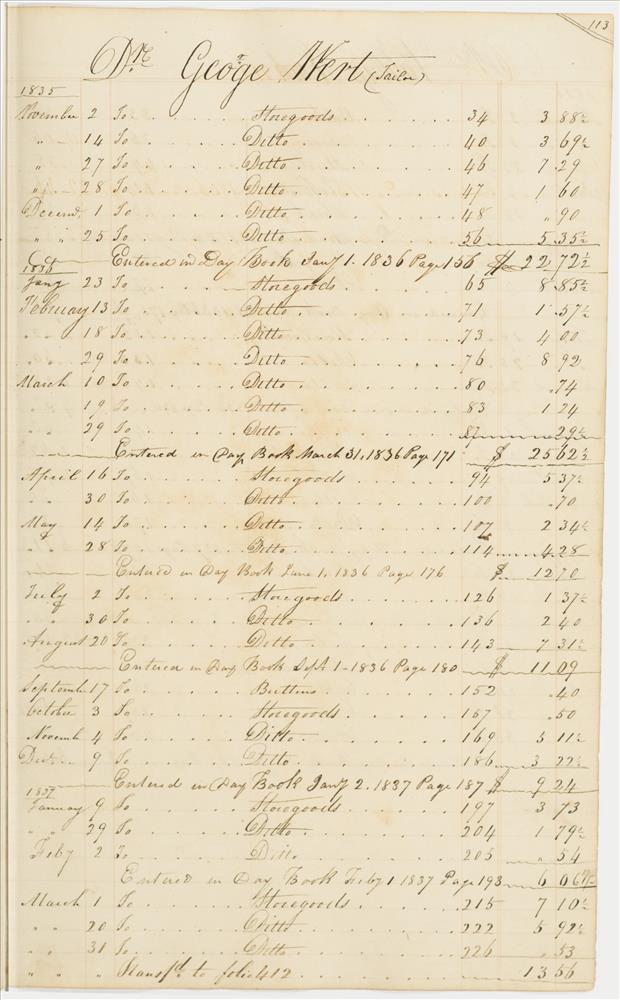 113
Dr. George Wert (Tailor)
1835
November 2 To . . . . . . Storegoods . . . . . . 34 3 88½
" 14 To . . . . . . Ditto . . . . . . 40 3 69½
" 27 To . . . . . . Ditto . . . . . . 46 7 29
" 28 To . . . . . . Ditto . . . . . . 47 1 60
Decem. 1 To . . . . . . Ditto . . . . . . 48 " 90
" " 25 To . . . . . . Ditto . . . . . . 56 5 35½
Entered in Day Book Jany 1. 1836 Page 156 $ 22 72½
1836
Jany 23 To . . . . . . Storegoods . . . . . . 65 8 85½
February 13 To . . . . . . Ditto . . . . . . 71 1 57½
" " 18 To . . . . . . Ditto . . . . . . 73 4 00
" " 29 To . . . . . . Ditto . . . . . . 76 8 92
March 10 To . . . . . . Ditto . . . . . . 80 " 74
" " 19 To . . . . . . Ditto . . . . . . 83 1 24
" " 29 To . . . . . . Ditto . . . . . . 87 " 29½
Entered in Day Book March 31. 1836 Page 171 $ 25 62½
April 16 To . . . . . . Storegoods . . . . . . 94 5 37½
" " 30 To . . . . . . Ditto . . . . . . 100 " 70
May 14 To . . . . . . Ditto . . . . . . 107 2 34½
" " 28 To . . . . . . Ditto . . . . . . 114 4 28
Entered in Day Book June 1. 1836 Page 176 $ 12 70
July 2 To . . . . . . Storegoods . . . . . . 126 1 37½
" " 30 To . . . . . . Ditto . . . . . . 136 2 40
August 20 To . . . . . . Ditto . . . . . . 143 7 31½
Entered in Day Book Sept. 1. 1836 Page 180 $ 11 09
Septemb 17 To . . . . . . Buttons . . . . . . 152 " 40
October 3 To . . . . . . Storegoods . . . . . . 157 " 50
Novemb 4 To . . . . . . Ditto . . . . . . 169 5 11½
9 To . . . . . . Ditto . . . . . . 186 3 22½
Entered in Day Book Jany 2. 1837 Page 187 $ 9 24
1837
January 9 To . . . . . . Storegoods . . . . . . 197 3 73
" " 29 To . . . . . . Ditto . . . . . . 204 1 79½
Feby 2 To . . . . . . Ditto . . . . . . 205 " 54
Entered in Day Book Feby 1 1837 Page 193 6 06½
March 1 To . . . . . . Storegoods . . . . . . 215 7 10½
" " 20 To . . . . . . Ditto . . . . . . 222 5 92½
" " 31 To . . . . . . Ditto . . . . . . 226 " 53
" " " Transfd. to folio 412 . . . . . . 13 56